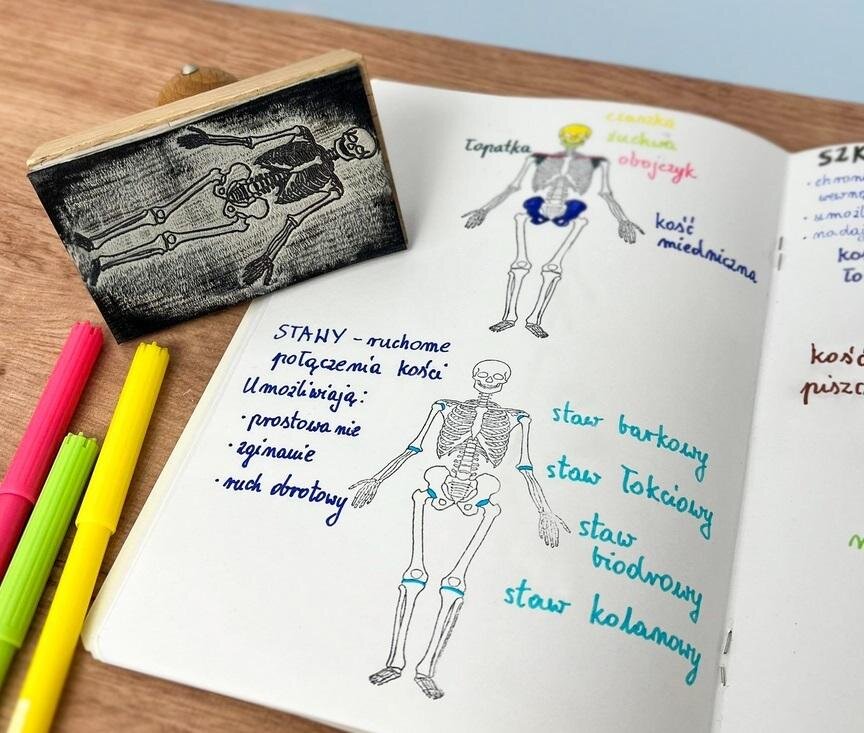 czaszka
żuchwa
łopatka
obojczyk
kość
miedniczna
STAWY - ruchome
połączenia kości
Umożliwiają:
• prostowanie
• zginanie
• ruch obrotowy
staw barkowy
staw łokciowy
staw
biodrowy
staw kolanowy
SZK
kość
piszcz